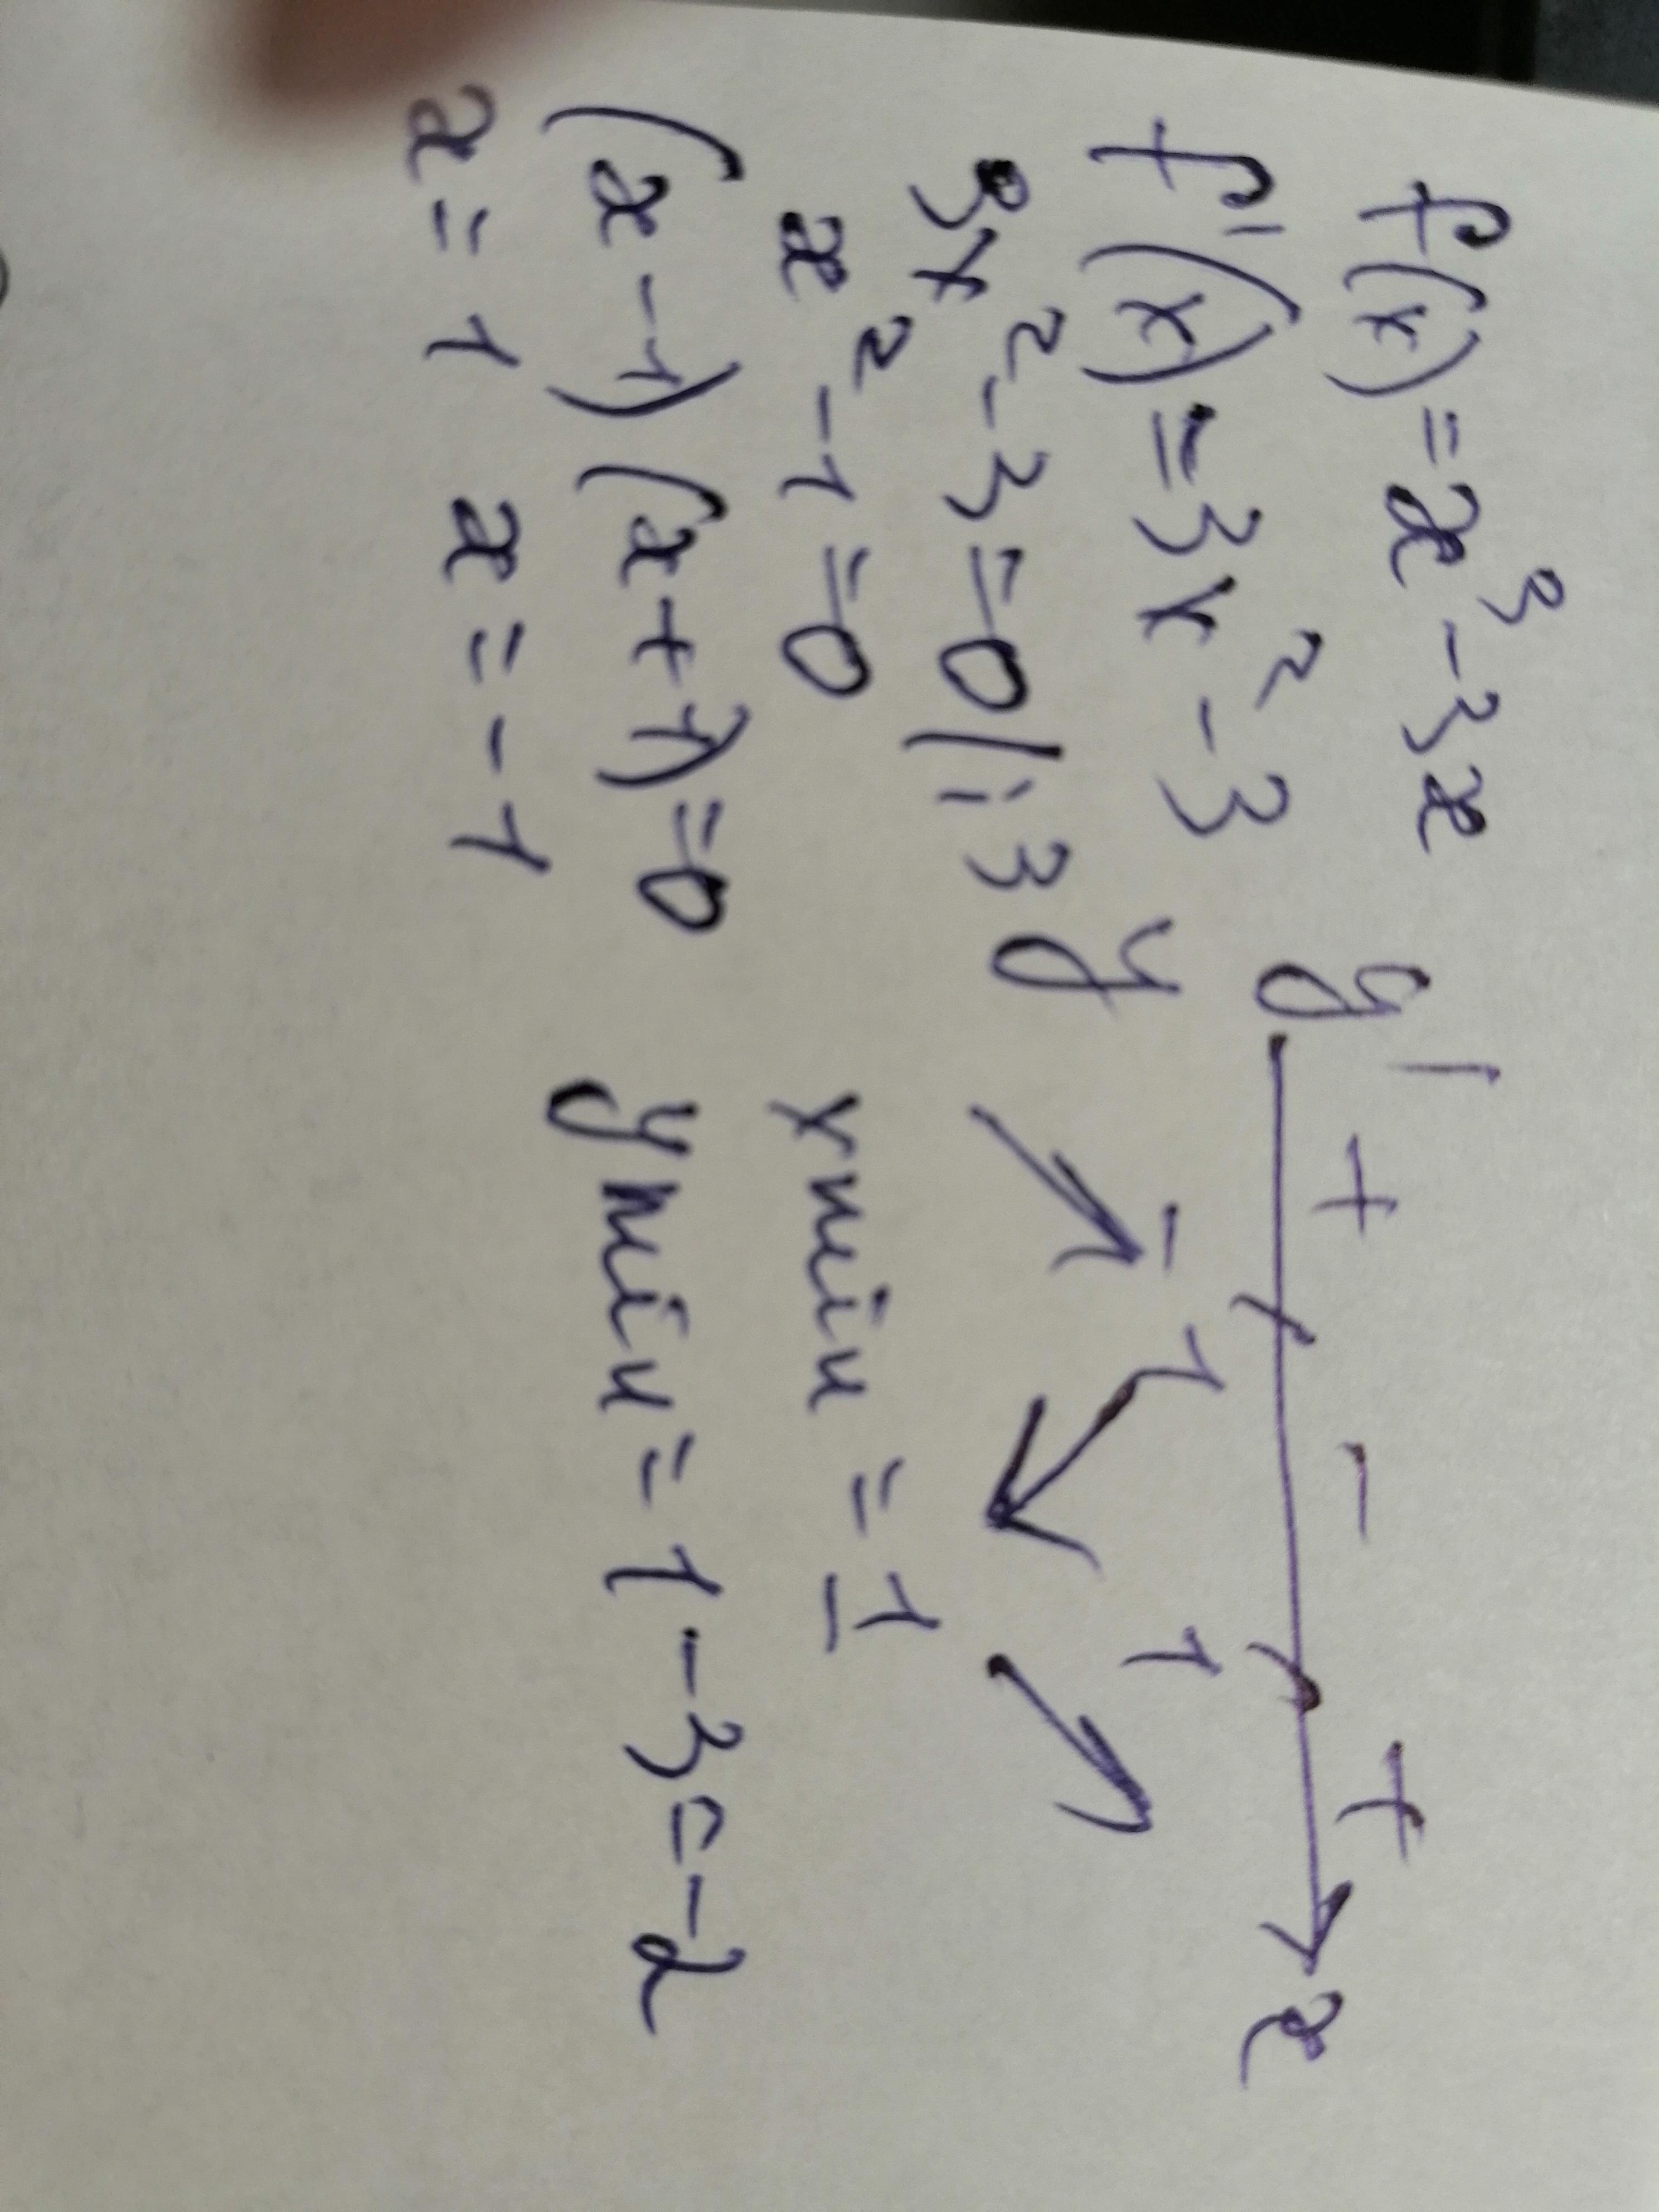 f(x) = x³ - 3x
f'(x) = 3x² - 3
3x² - 3 = 0 | : 3
x² - 1 = 0
(x - 1)(x + 1) = 0
x = 1 x = -1
y' + - + x
-1 1
y ↗ ↘ ↗
xmin = 1
ymin = 1 - 3 = -2